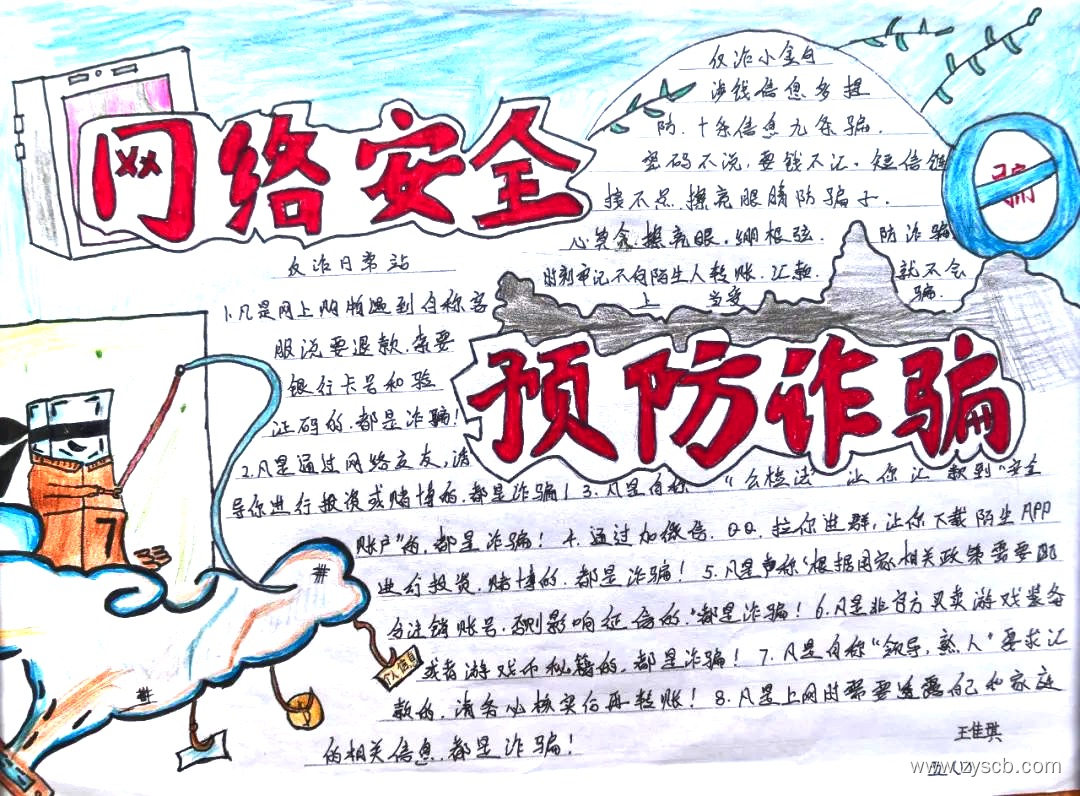 网络安全
反诈小金句
涉钱信息多提
防.十条信息九条骗.
密码不说,要钱不汇。短信链
接不点.擦亮眼睛防骗子.
心莫贪.擦亮眼.绷根弦. 防诈骗
时刻牢记不向陌生人转账.汇款. 就不会
上 当受 骗.
骗
预防诈骗
反诈日常站
1.凡是网上购物遇到自称客
服说要退款.索要
银行卡号和验
证码的.都是诈骗!
2.凡是通过网络交友,诱
导你进行投资或赌博的.都是诈骗!3.凡是自称“公检法”让你汇款到“安全
账户”的.都是诈骗!4.通过加微信.QQ.拉你进群,让你下载陌生APP
进行投资.赌博的.都是诈骗!5.凡是声称“根据国家相关政策需要配
合注销账号.否则影响征信的.”都是诈骗!6.凡是非官方买卖游戏装备
或者游戏币 的.都是诈骗!7.凡是自称“领导,熟人”要求汇
款的.请务必核实后再转账!8.凡是上网时需要透露自己和家庭
的相关信息.都是诈骗!
7
#
#
个人信息
王佳琪
五
www.zyscb.com